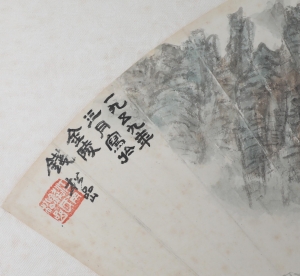 一九五九年
三月寫於
金陵
錢松嵒